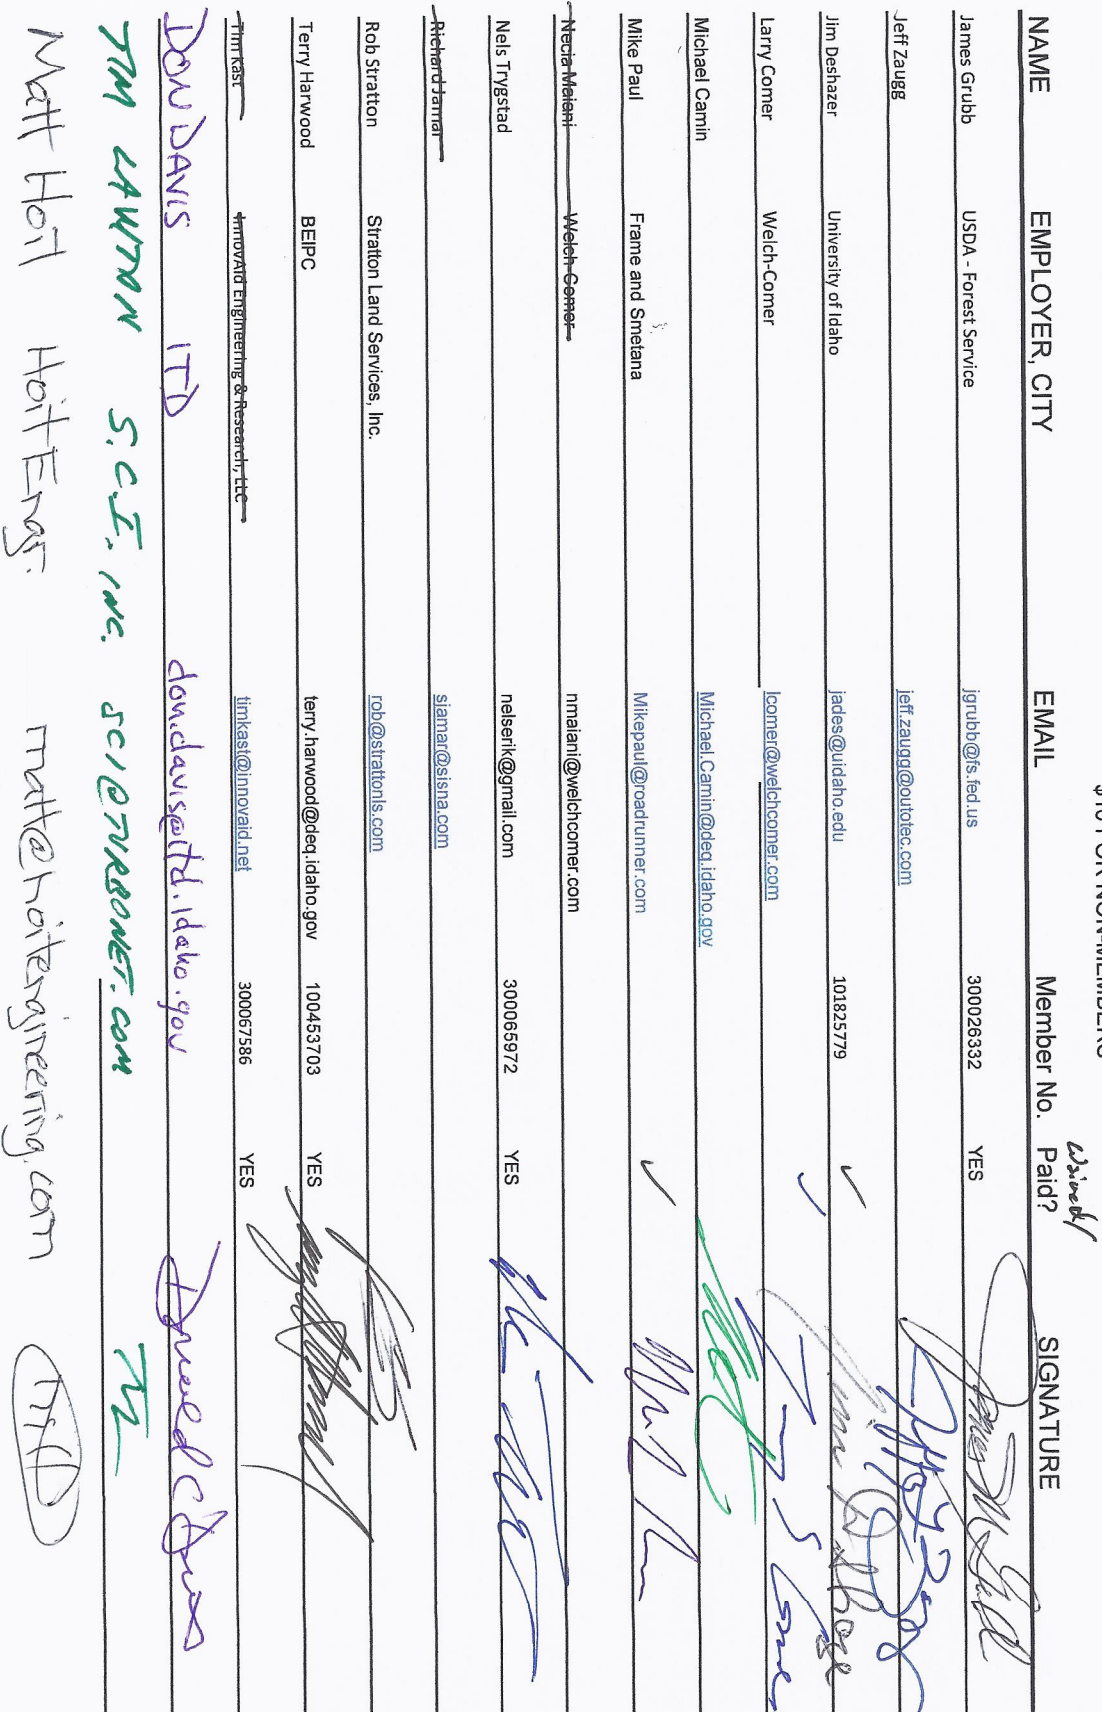 $10 FOR NON-MEMBERS
Waived/
NAME EMPLOYER, CITY EMAIL Member No. Paid? SIGNATURE
James Grubb USDA - Forest Service jgrubb@fs.fed.us 300026332 YES
Jeff Zaugg jeff.zaugg@outotec.com
Jim Deshazer University of Idaho jades@uidaho.edu 101825779 ✓
Larry Comer Welch-Comer lcomer@welchcomer.com ✓
Michael Camin Michael.Camin@deq.idaho.gov
Mike Paul Frame and Smetana Mikepaul@roadrunner.com ✓
Necia Maiani Welch-Comer nmaiani@welchcomer.com
Nels Trygstad nelserik@gmail.com 300065972 YES
Richard Jamar sjamar@sisna.com
Rob Stratton Stratton Land Services, Inc. rob@strattonls.com
Terry Harwood BEIPC terry.harwood@deq.idaho.gov 100453703 YES
Tim Kast InnovAid Engineering & Research, LLC timkast@innovaid.net 300067586 YES
DON DAVIS ITD don.davis@itd.idaho.gov
JIM LAWTON S.C.I. INC. SCI@TURBONET.COM
Matt Hoit Hoit Engr. matt@hoitengineering.com